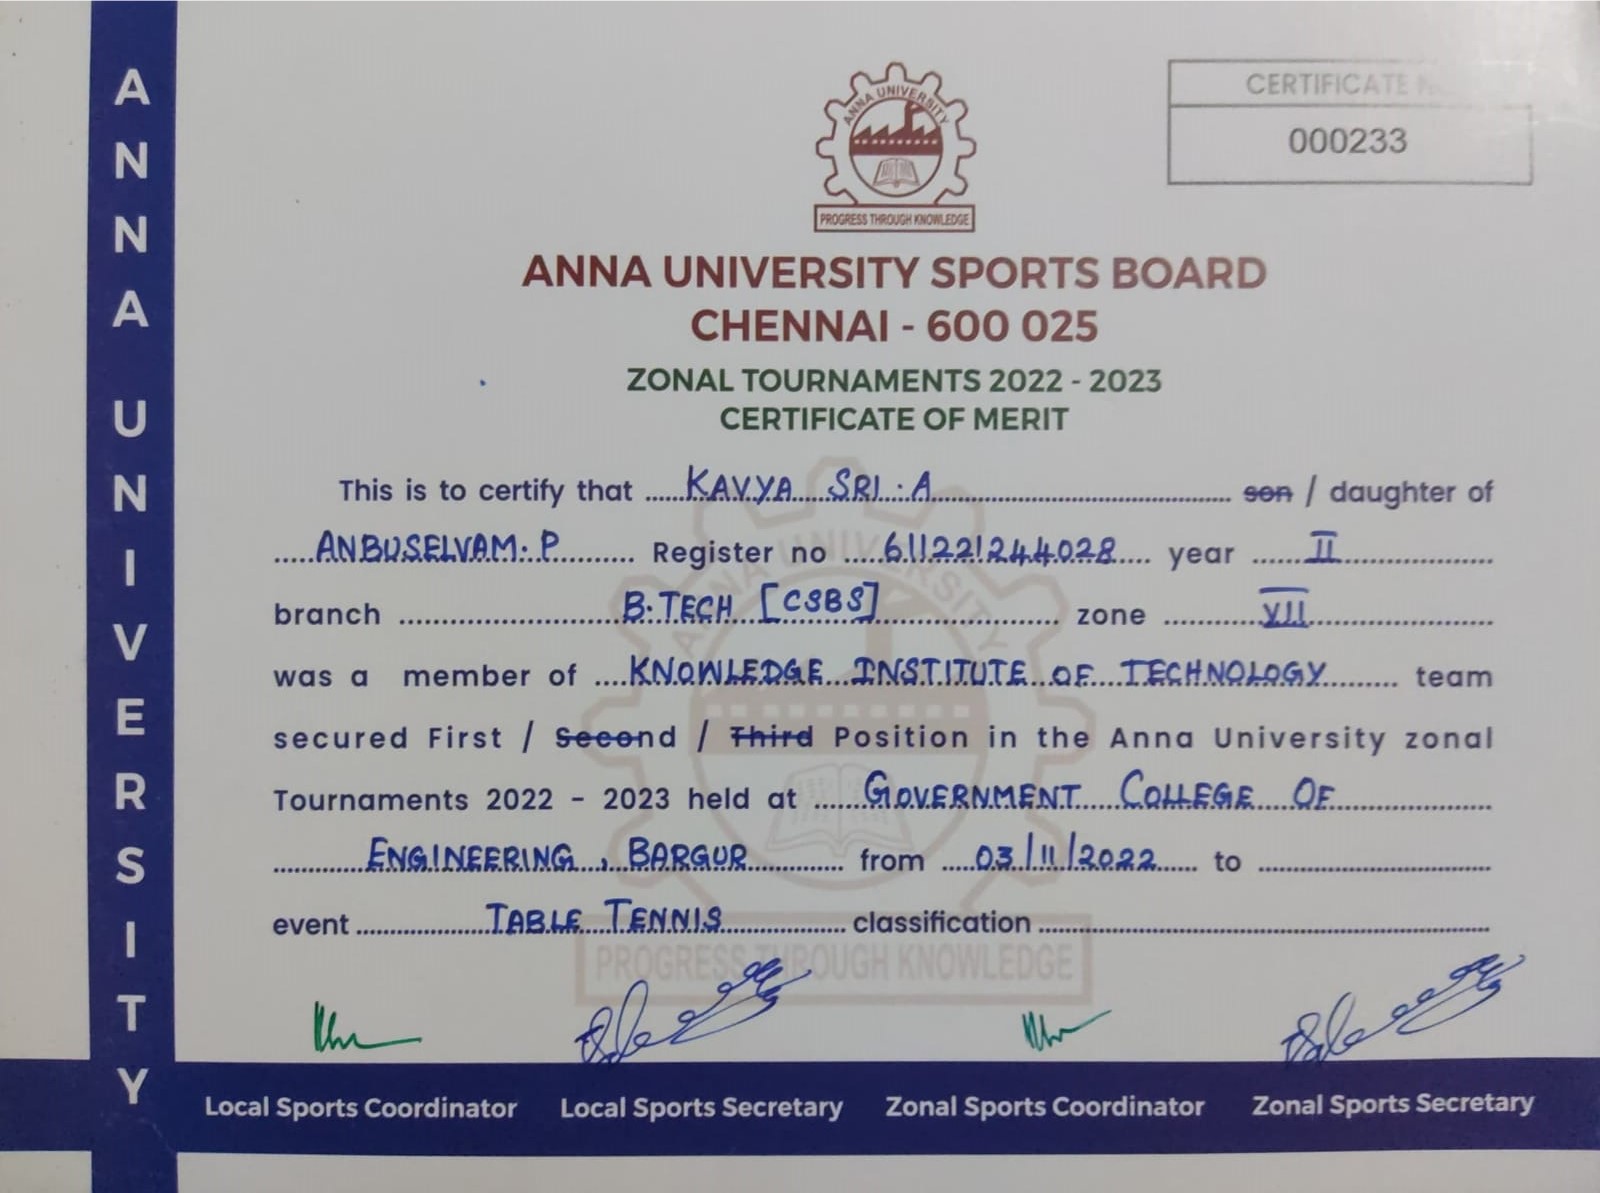 ANNA UNIVERSITY
ANNA UNIVERSITY
PROGRESS THROUGH KNOWLEDGE
CERTIFICATE
000233
ANNA UNIVERSITY SPORTS BOARD
CHENNAI - 600 025
ZONAL TOURNAMENTS 2022 - 2023
CERTIFICATE OF MERIT
This is to certify that KAVYA SRI . A son / daughter of
ANBUSELVAM. P Register no 611221244028 year II
branch B.TECH [CSBS] zone VII
was a member of KNOWLEDGE INSTITUTE OF TECHNOLOGY team
secured First / Second / Third Position in the Anna University zonal
Tournaments 2022 - 2023 held at GOVERNMENT COLLEGE OF
ENGINEERING, BARGUR from 03/11/2022 to
event TABLE TENNIS classification
ANNA UNIVERSITY
PROGRESS THROUGH KNOWLEDGE
Local Sports Coordinator Local Sports Secretary Zonal Sports Coordinator Zonal Sports Secretary